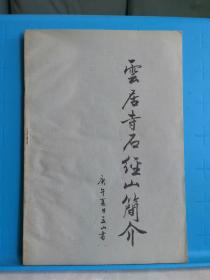 雲居寺石經山簡介
庚午夏日玉山書